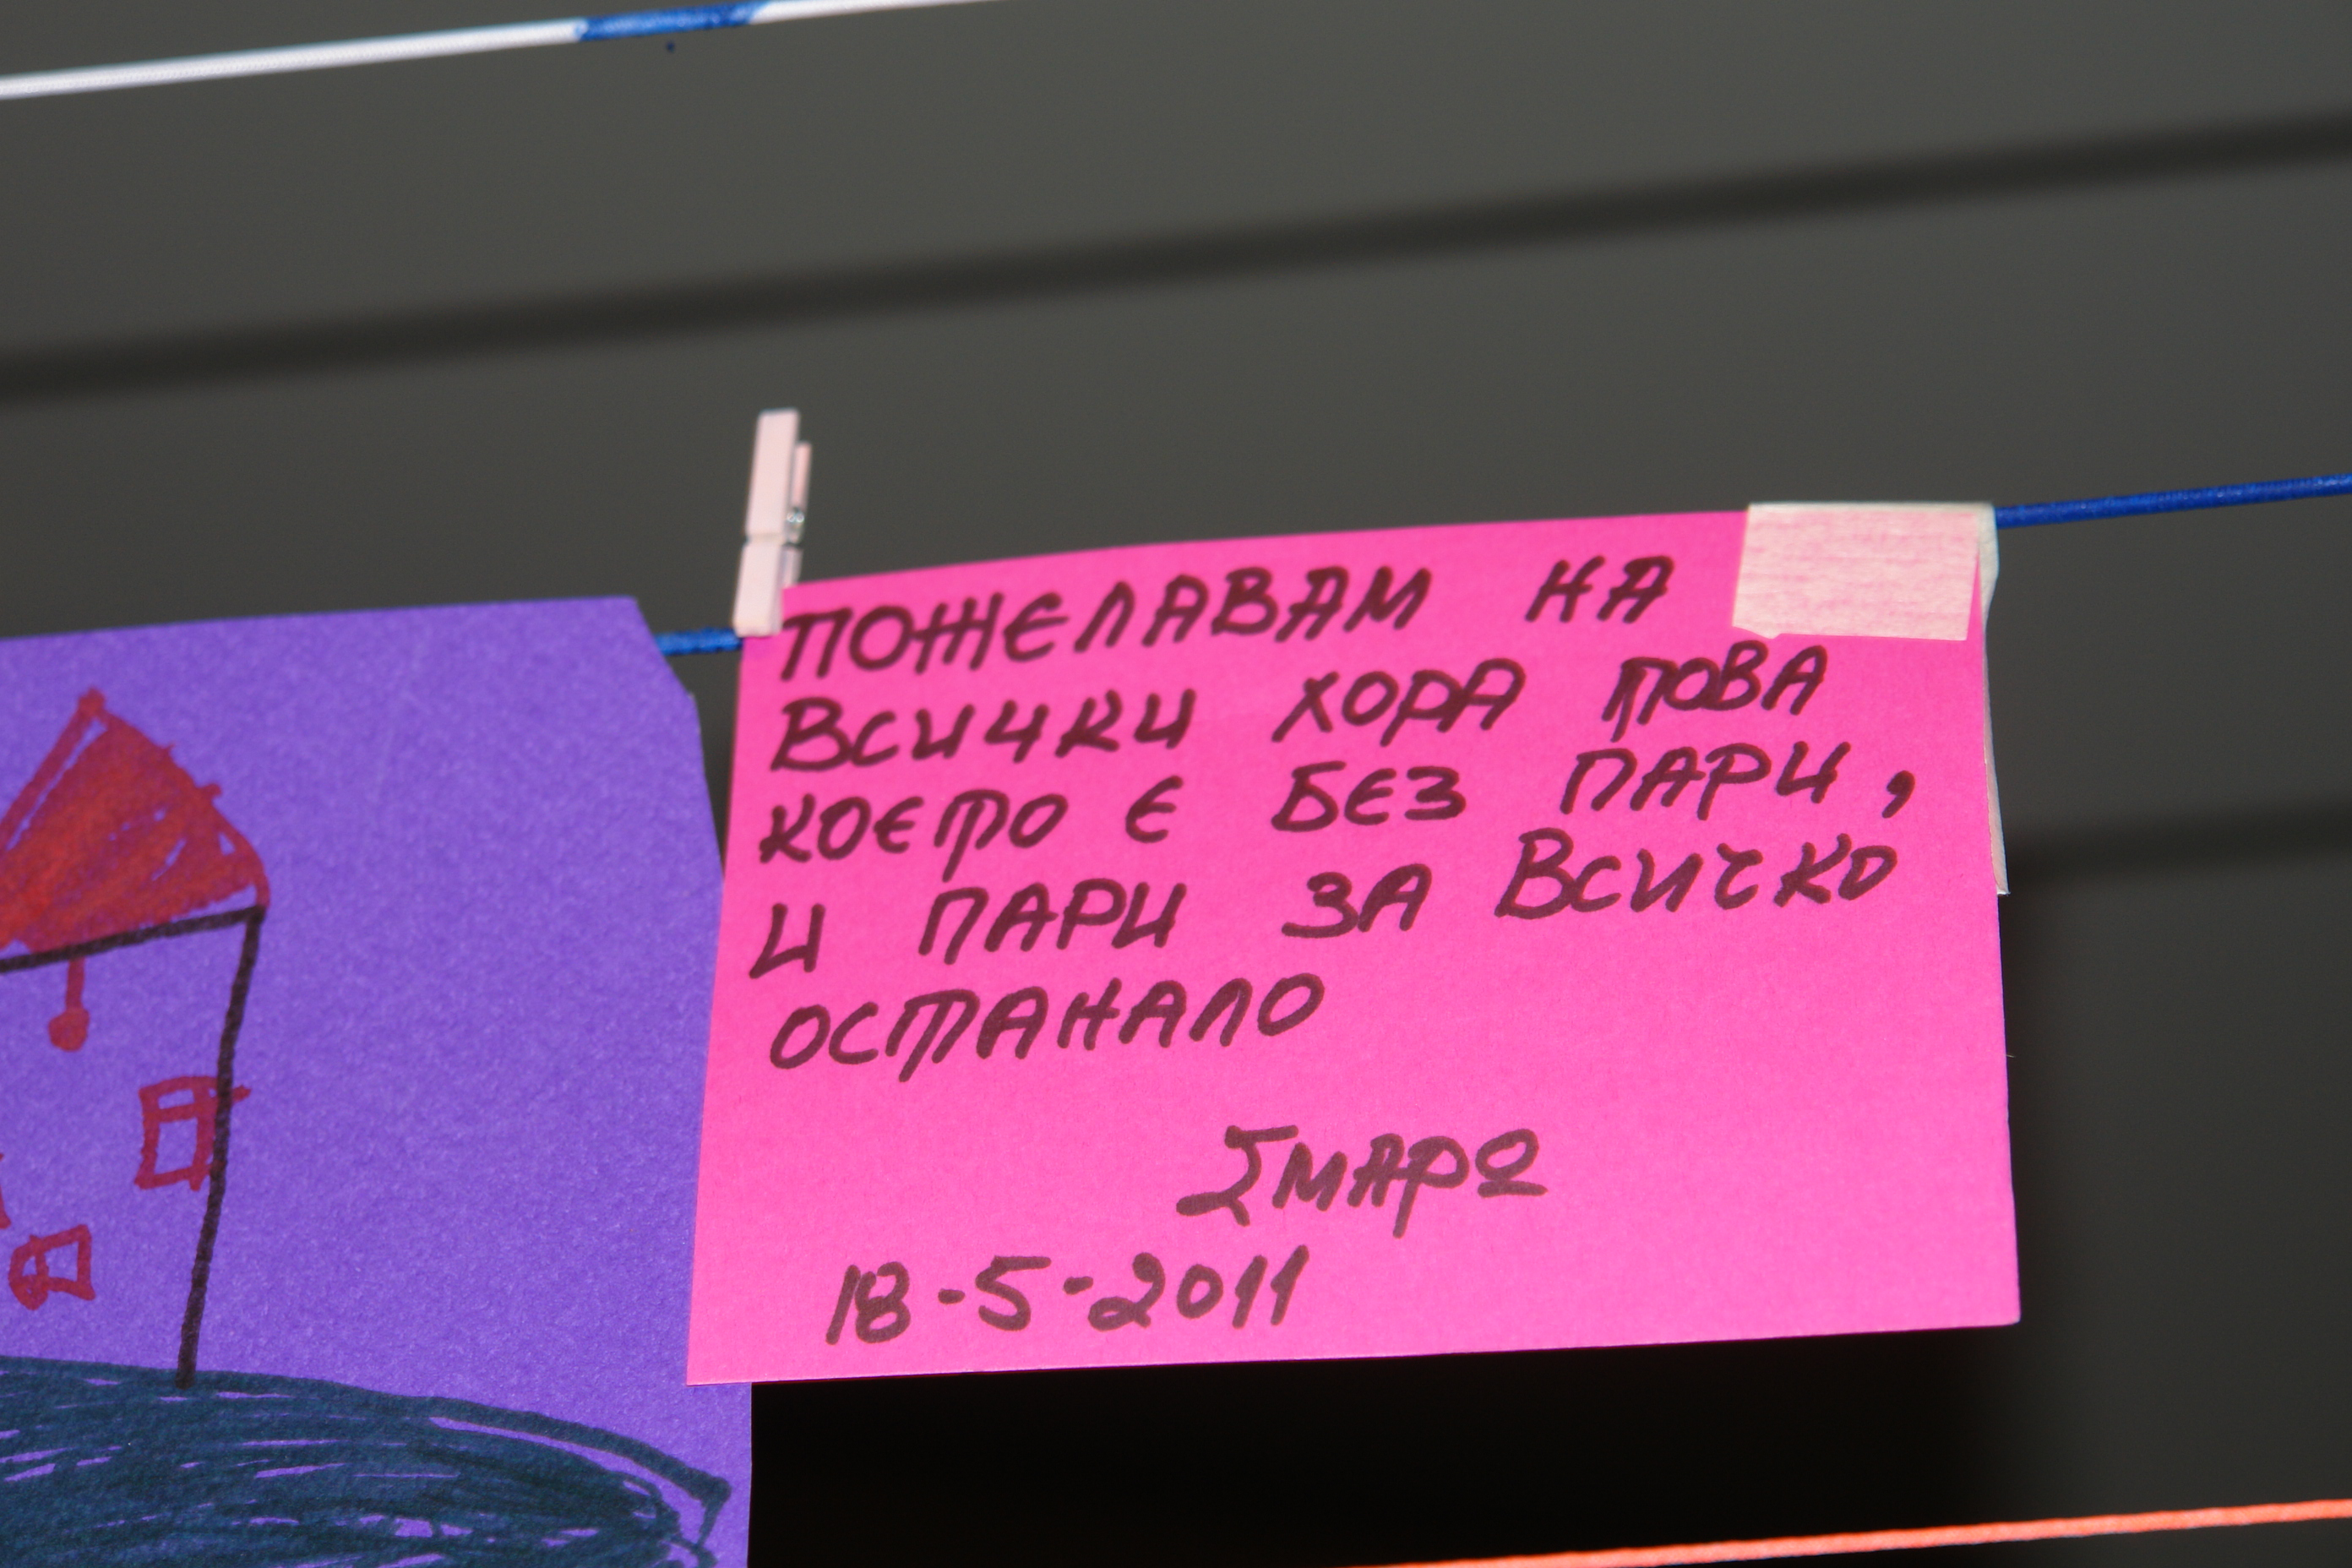 ПОЖЕЛАВАМ НА
ВСИЧКИ ХОРА ТОВА
КОЕТО Е БЕЗ ПАРИ,
И ПАРИ ЗА ВСИЧКО
ОСТАНАЛО
ΣΜΑΡΩ
18-5-2011